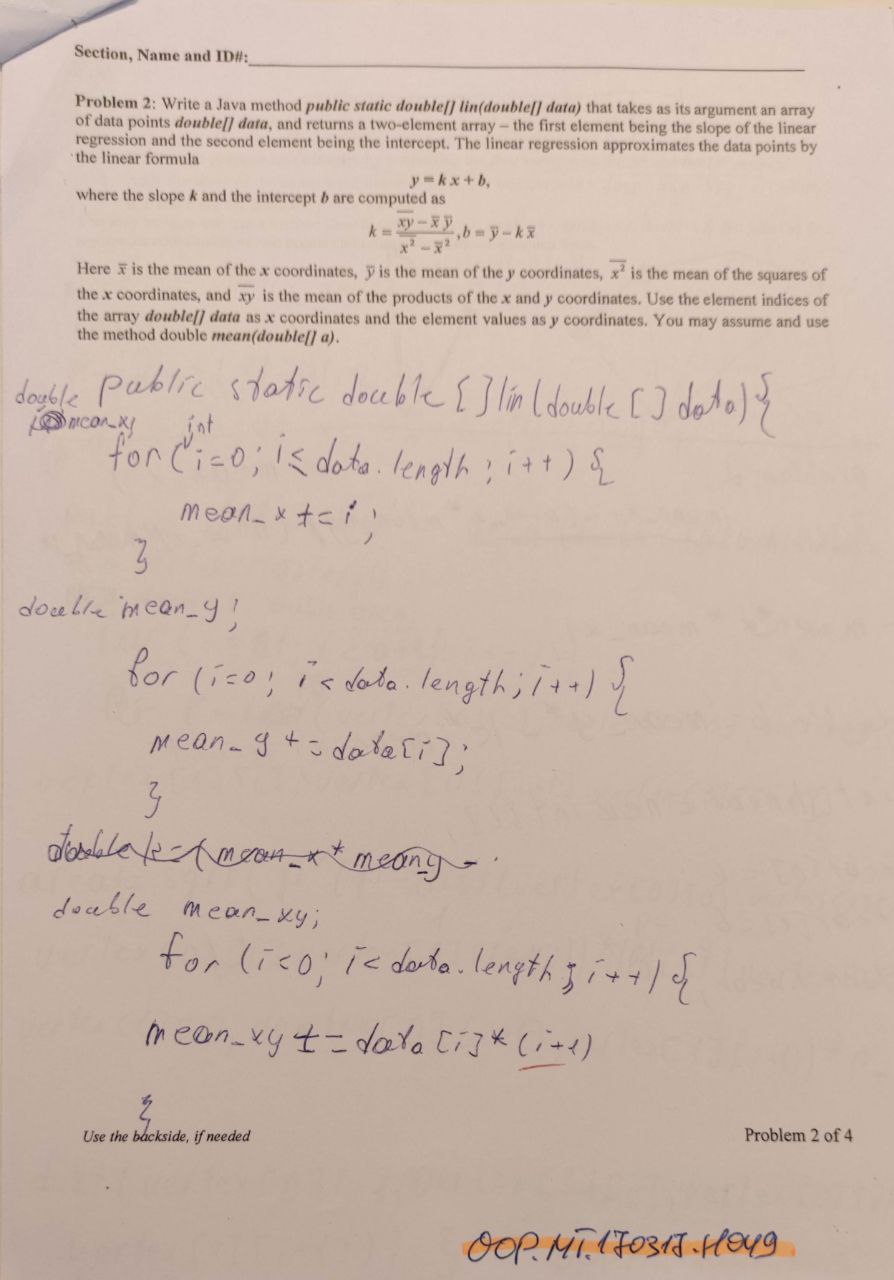 Section, Name and ID#:
Problem 2: Write a Java method public static double[] lin(double[] data) that takes as its argument an array
of data points double[] data, and returns a two-element array – the first element being the slope of the linear
regression and the second element being the intercept. The linear regression approximates the data points by
the linear formula
y = k x + b,
where the slope k and the intercept b are computed as
k = (x̅y̅ - x̅ y̅) / (x̅²̅ - x̅²), b = y̅ - k x̅
Here x̅ is the mean of the x coordinates, y̅ is the mean of the y coordinates, x̅²̅ is the mean of the squares of
the x coordinates, and x̅y̅ is the mean of the products of the x and y coordinates. Use the element indices of
the array double[] data as x coordinates and the element values as y coordinates. You may assume and use
the method double mean(double[] a).
public static double [] lin(double [] data){
double
mean_x;
int
for (i=0; i≤data.length; i++) {
mean_x += i;
}
double mean_y;
for (i=0; i<data.length; i++) {
mean_y += data[i];
}
double k = (mean_x * mean_y -
double mean_xy;
for (i<0; i<data.length; i++) {
mean_xy += data[i]*(i+1)
}
Use the backside, if needed
Problem 2 of 4
OOP.MT.170317.H049